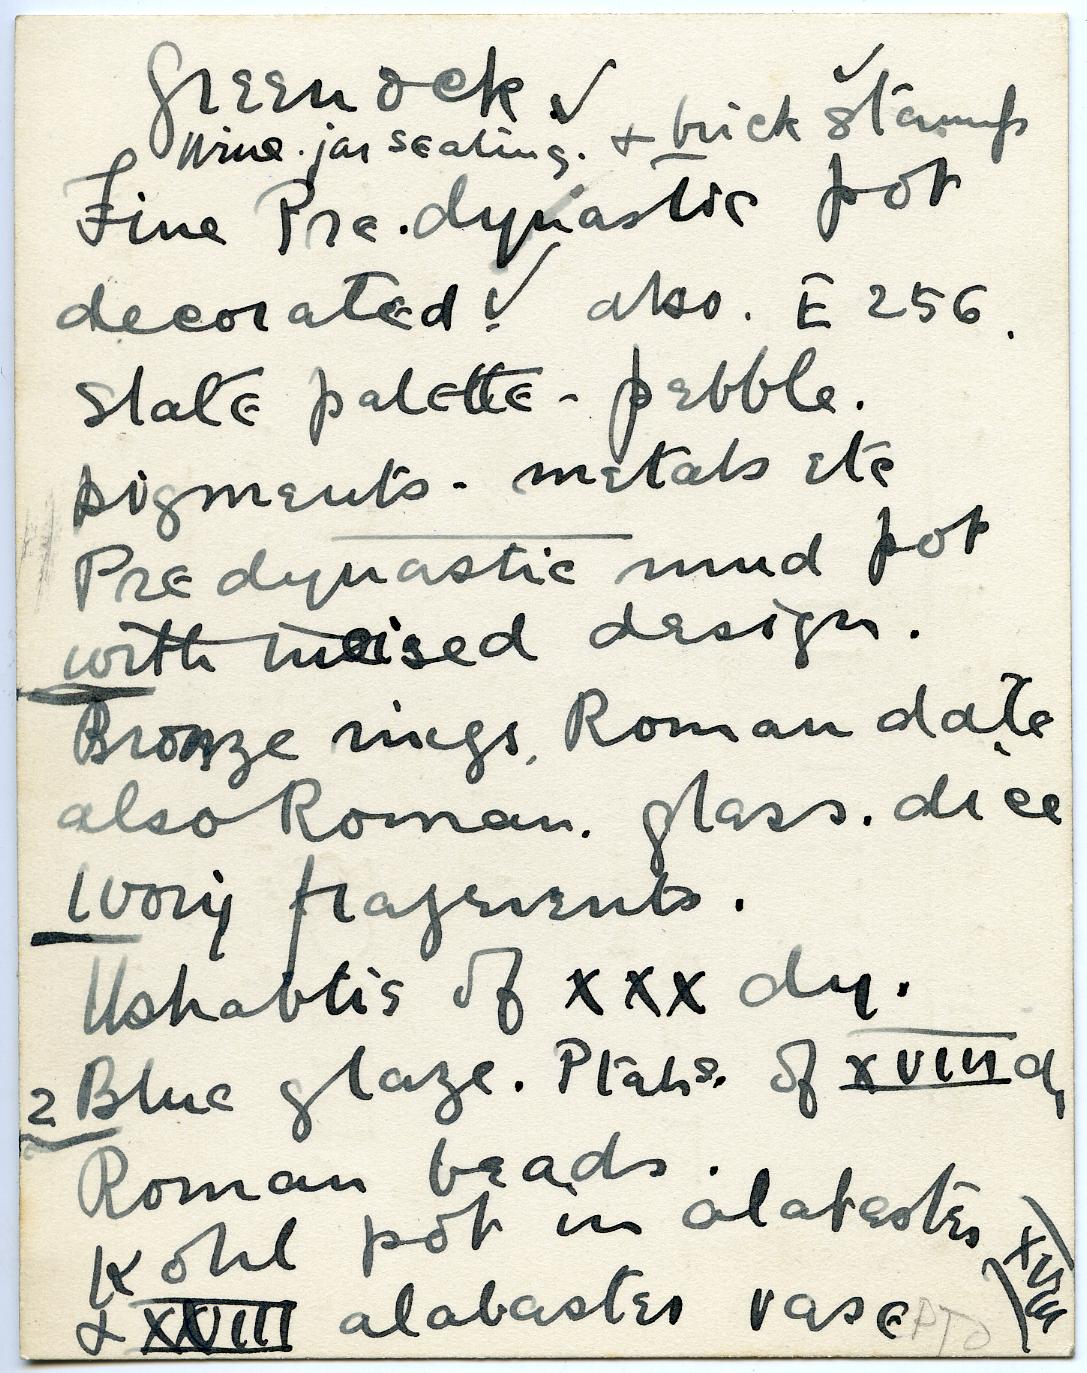 Greenock ✓
Wine. jar sealing. & brick stamp ✓
Fine Pre.dynastic pot
decorated ✓ also. E 256.
Slate palette - pebble.
pigments - metals etc
Predynastic mud pot
with incised design.
Bronze rings, Roman date
also Roman. glass. dice
Ivory fragments.
Ushabtis of XXX dy.
2 Blue glaze. Ptahs. of XVIII d,
Roman beads.
Kohl pot in alabaster (XVIII)
& XXVIII alabaster vase
PTO